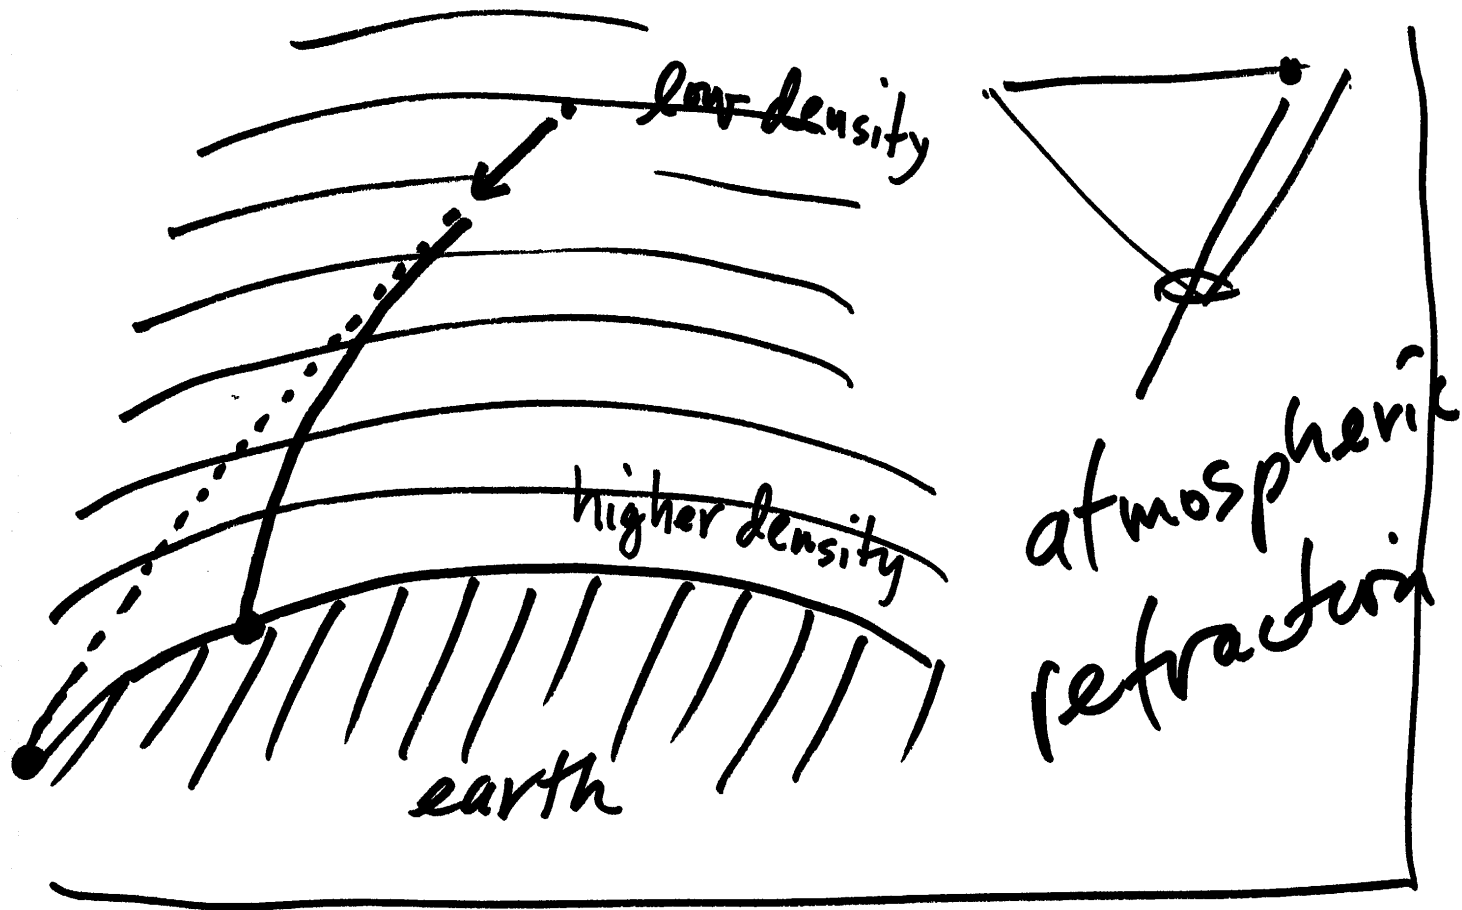 low density
higher density
earth
atmospheric
refraction